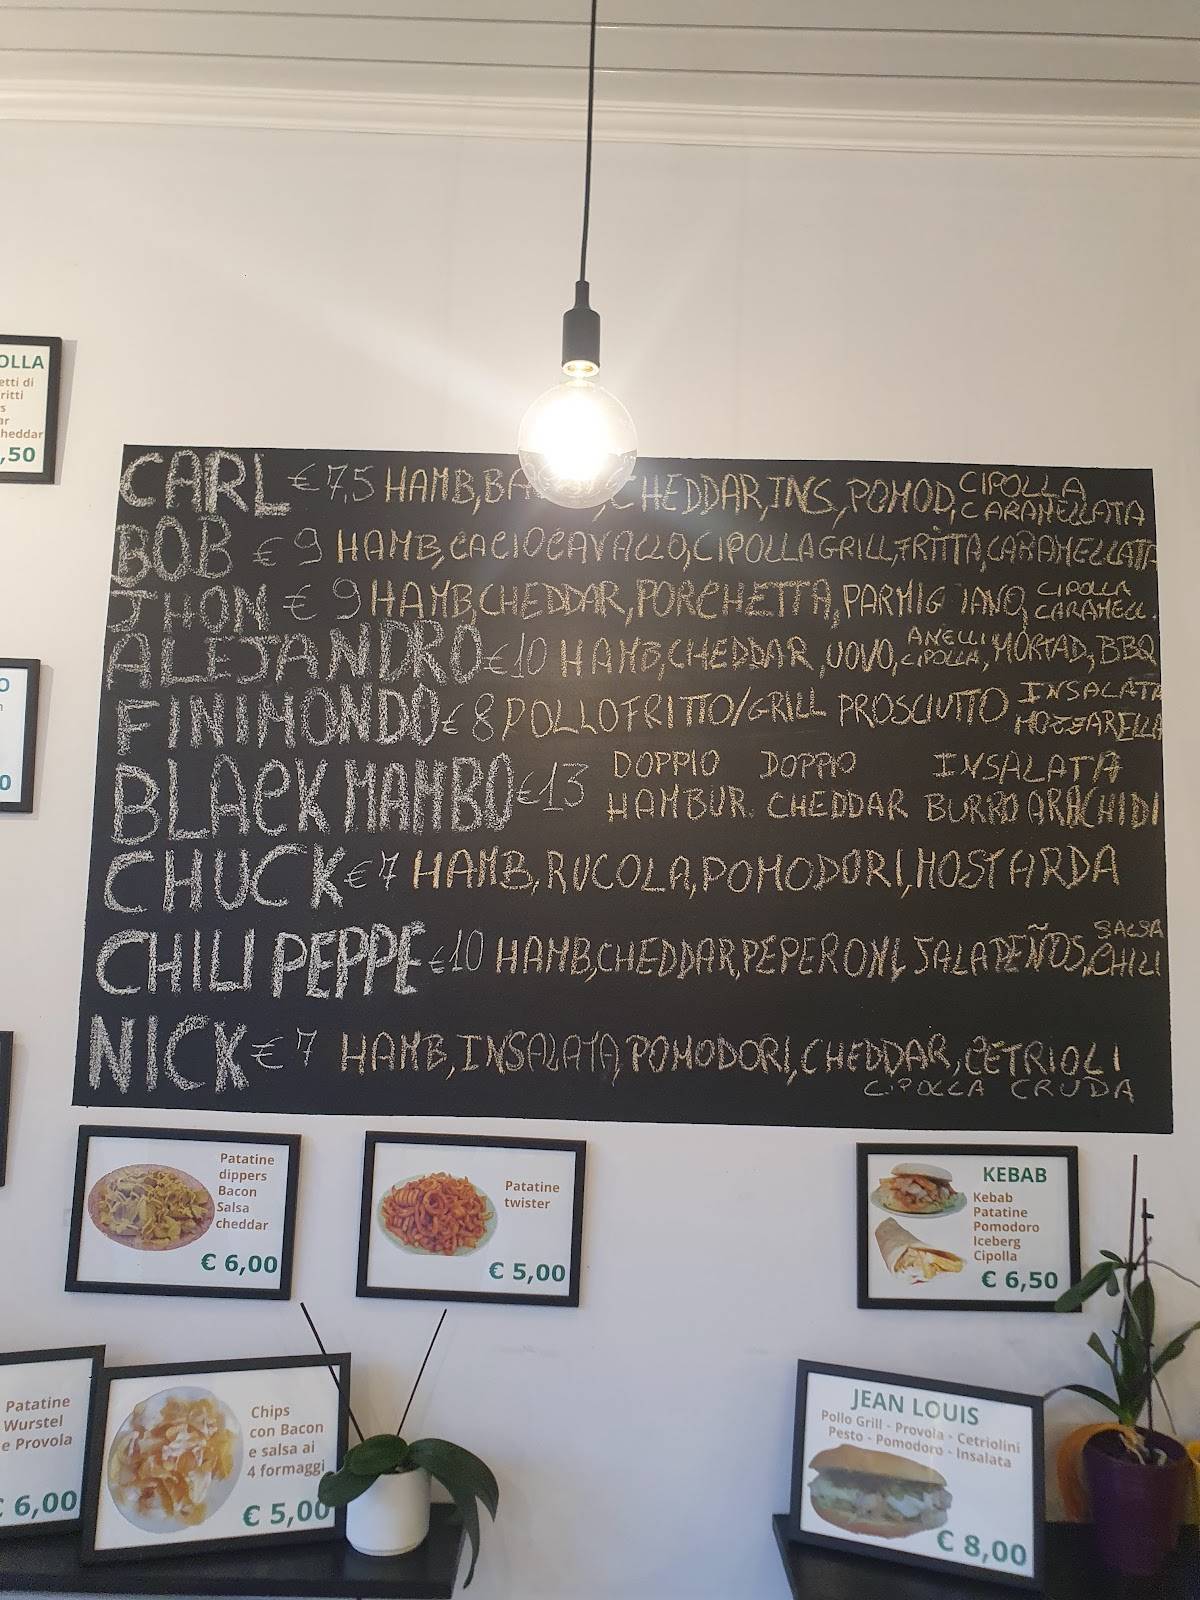 OLLA
etti di
ritti
heddar
,50
CARL € 7,5 HAMB, CHEDDAR, INS, POMOD, CIPOLLA CARAMELLATA
BOB € 9 HAMB, CACIOCAVALLO, CIPOLLA GRILL, FRITTA, CARAMELLATA
JHON € 9 HAMB, CHEDDAR, PORCHETTA, PARMIGIANO, CIPOLLA CARAMELL.
ALEJANDRO € 10 HAMB, CHEDDAR, UOVO, ANELLI CIPOLLA, MORTAD, BBQ
FINIMONDO € 8 POLLO FRITTO/GRILL PROSCIUTTO INSALATA MOZZARELLA
BLACK MAMBO € 13 DOPPIO HAMBUR. DOPPIO CHEDDAR INSALATA BURRO ARACHIDI
CHUCK € 7 HAMB, RUCOLA, POMODORI, MOSTARDA
CHILI PEPPE € 10 HAMB, CHEDDAR, PEPERONI, JALAPEÑOS, SALSA CHILI
NICK € 7 HAMB, INSALATA, POMODORI, CHEDDAR, CETRIOLI
CIPOLLA CRUDA
Patatine
dippers
Bacon
Salsa
cheddar
€ 6,00
Patatine
twister
€ 5,00
KEBAB
Kebab
Patatine
Pomodoro
Iceberg
Cipolla
€ 6,50
Patatine
Wurstel
e Provola
€ 6,00
Chips
con Bacon
e salsa ai
4 formaggi
€ 5,00
JEAN LOUIS
Pollo Grill - Provola - Cetriolini
Pesto - Pomodoro - Insalata
€ 8,00